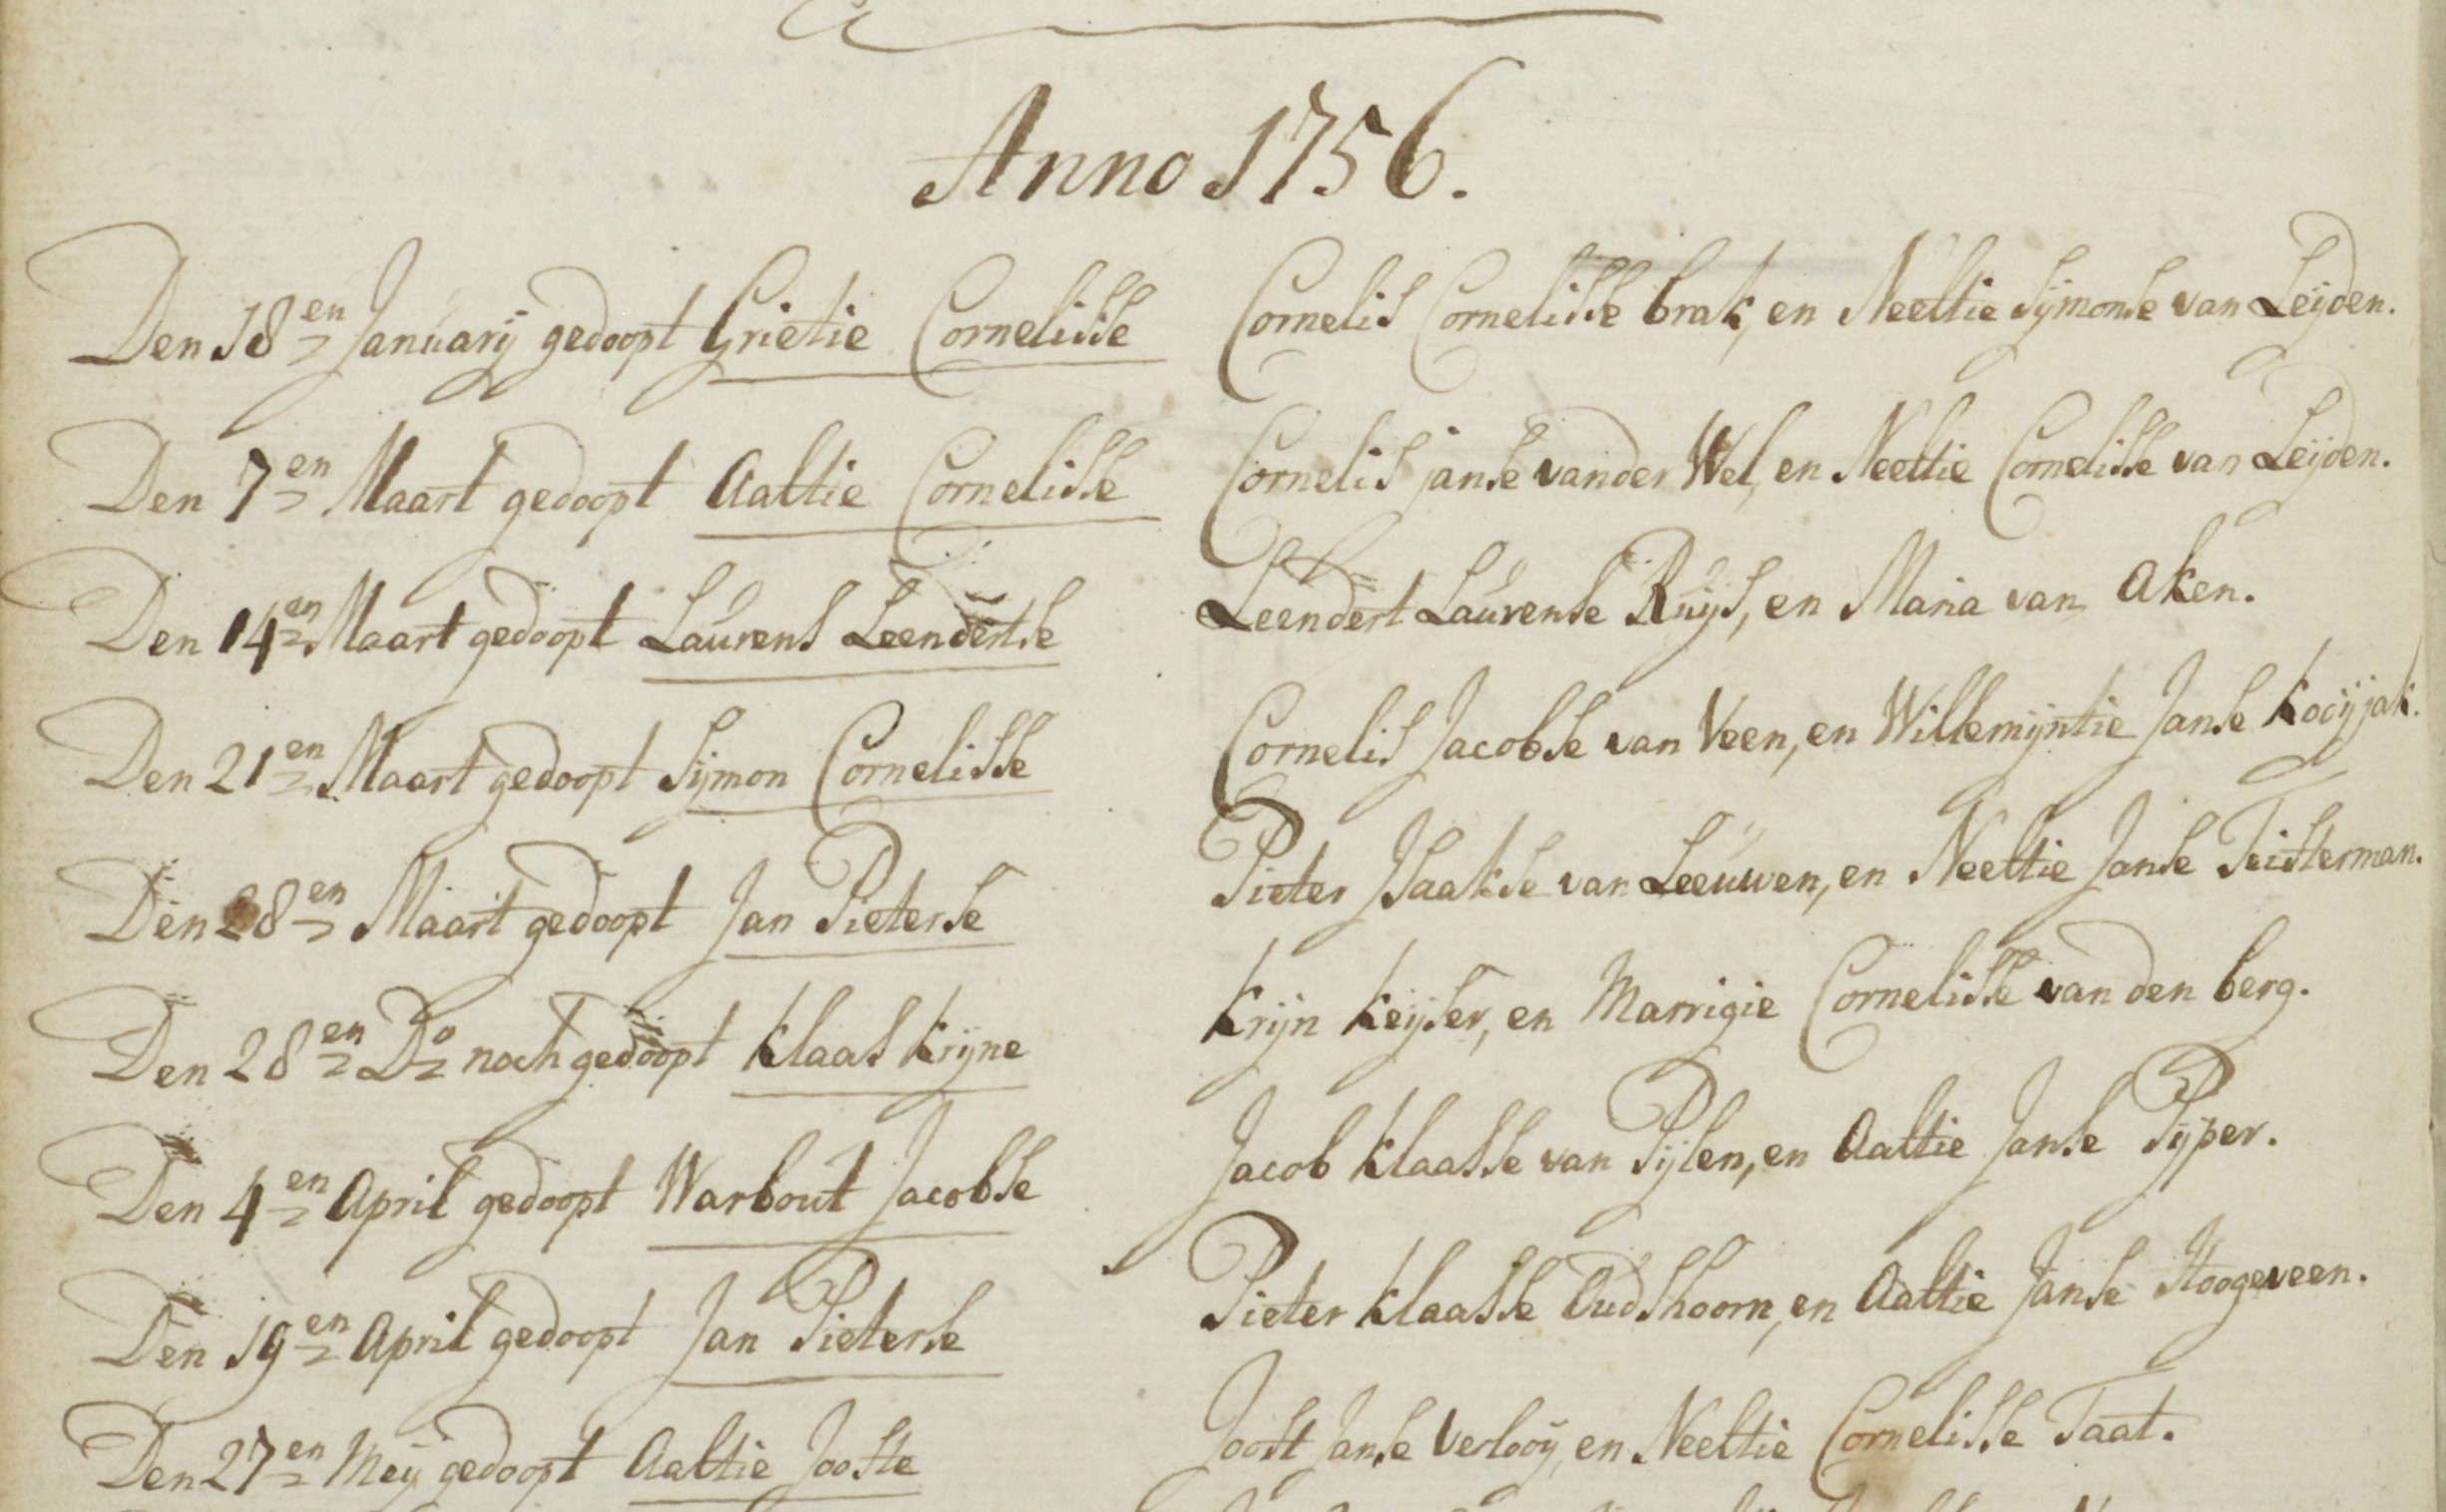 Anno 1756.
Den 18en Januarij gedoopt Grietie Cornelisse Cornelis Cornelisse brak, en Neeltie Sijmonse van Leijden.
Den 7en Maart gedoopt Aaltie Cornelisse Cornelis janse vander Wel, en Neeltie Cornelisse van Leijden.
Den 14en Maart gedoopt Laurens Leendertse Leendert Laurense Ruijs, en Maria van Aken.
Den 21en Maart gedoopt Sijmon Cornelisse Cornelis Jacobse van Veen, en Willemijntie Janse Kooijjak.
Den 28en Maart gedoopt Jan Pieterse Pieter Jsaakse van Leeuwen, en Neeltie Janse Teisterman.
Den 28en Do noch gedoopt Klaas Krijne Krijn Keijser, en Marrigie Cornelisse van den berg.
Den 4en April gedoopt Warbout Jacobse Jacob Klaasse van Pijlen, en Aaltie Janse Pijper.
Den 19en April gedoopt Jan Pieterse Pieter Klaasse Oudshoorn, en Aaltie Janse Hoogeveen.
Den 27en Meij gedoopt Aaltie Jooste Joost Janse Verlooij, en Neeltie Cornelisse Taat.